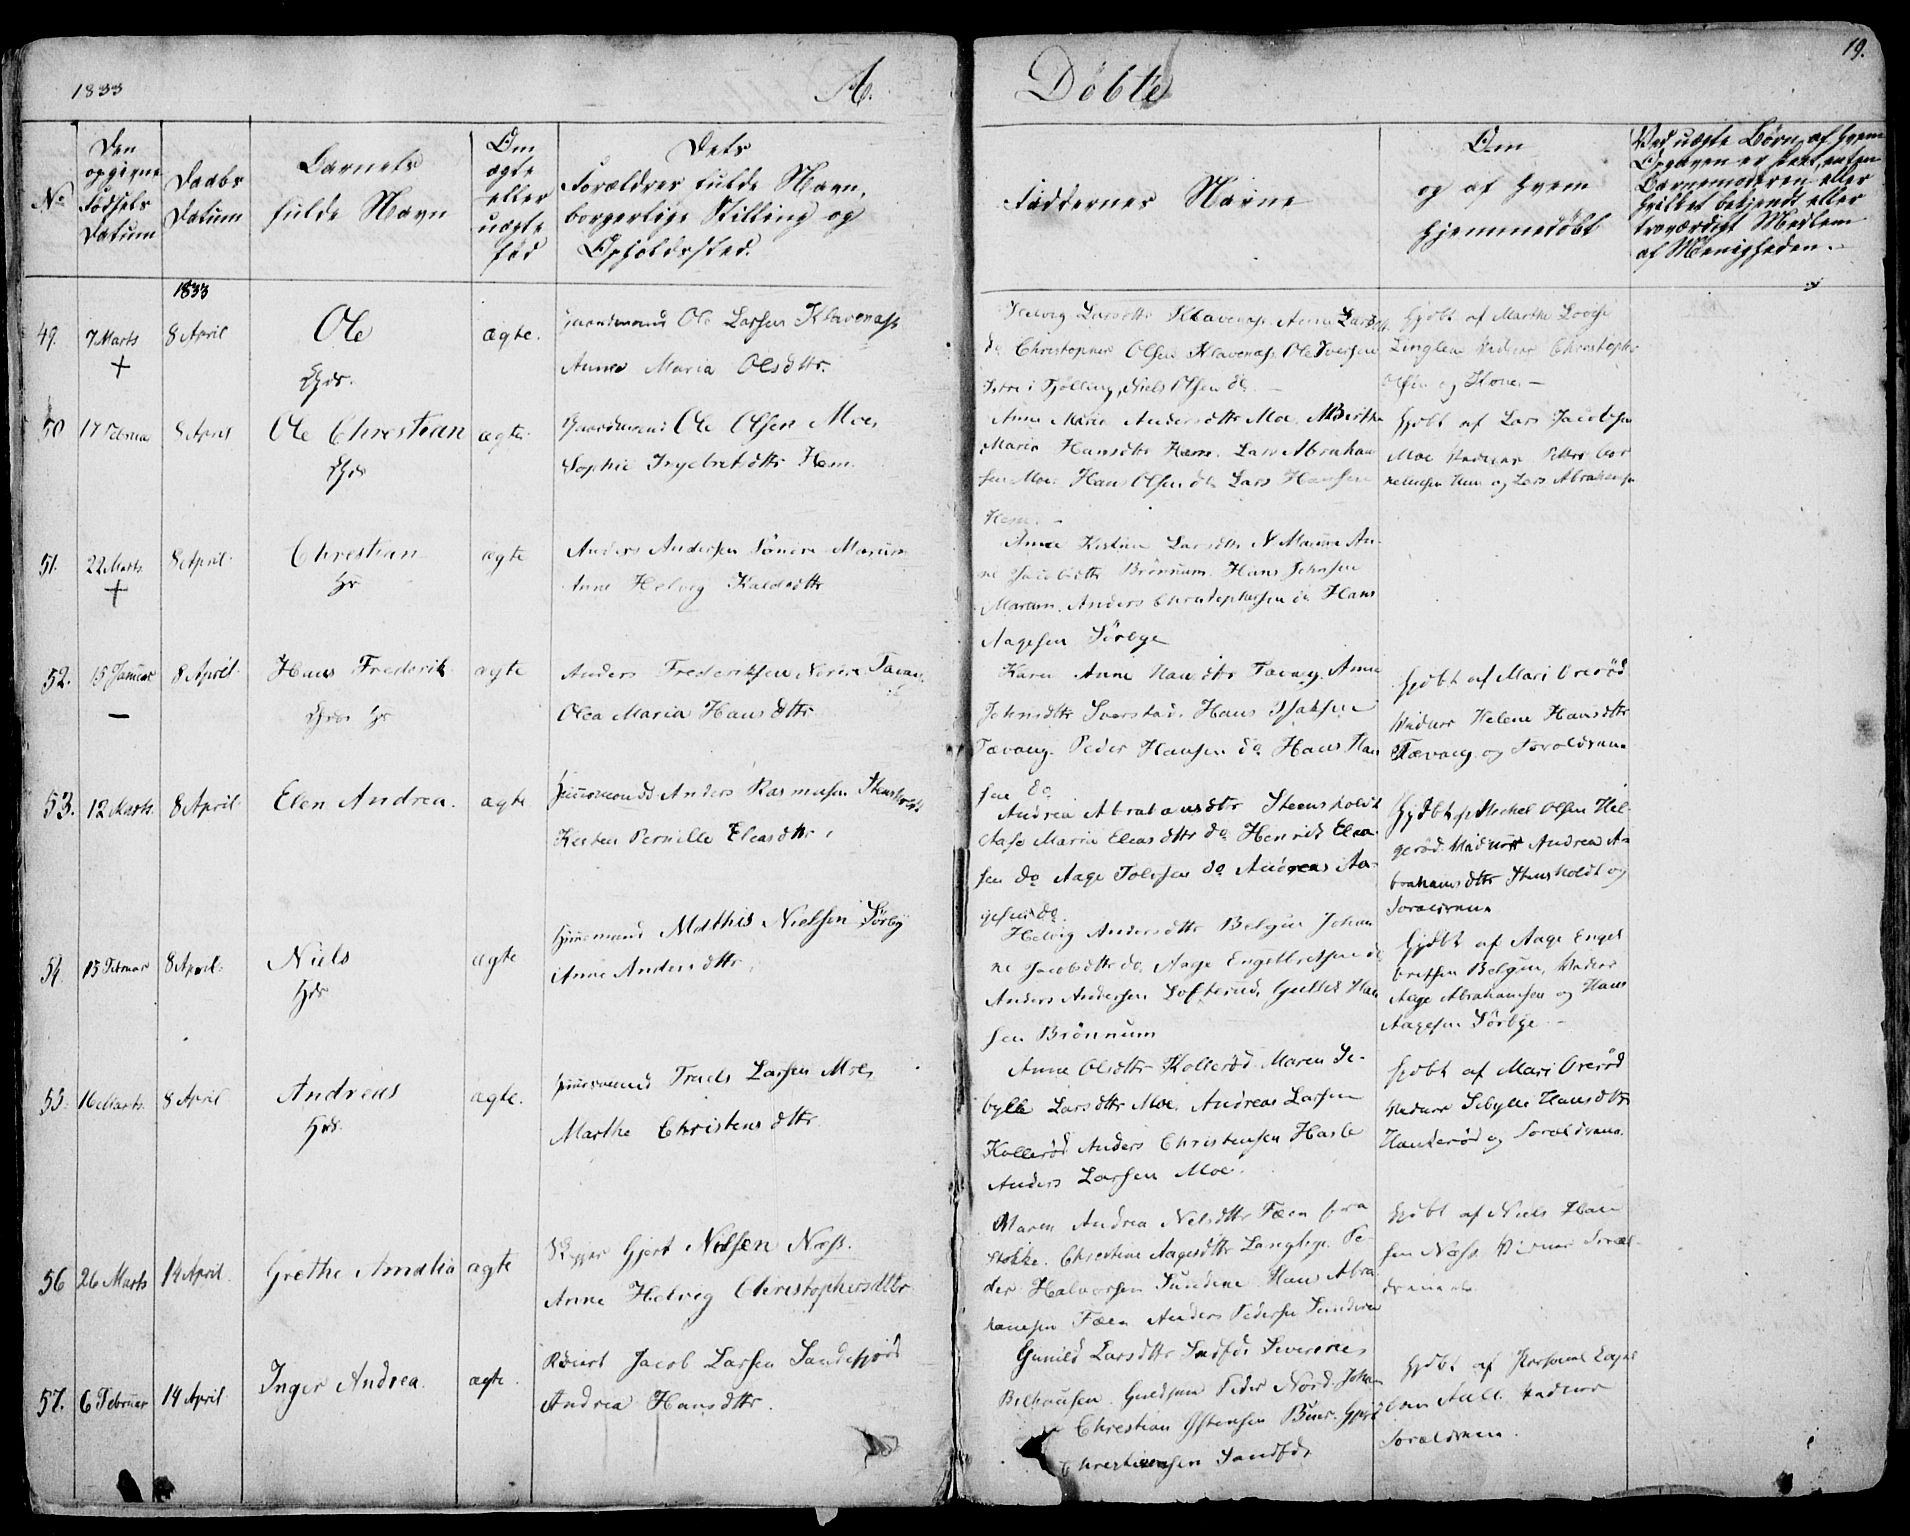 1833
A.
Døbte
19.
No
Den opgivne Fødsels Datum
Daabs Datum
Barnets fulde Navn
Om ægte eller uægte fød
Dets Forældres fulde Navn, borgerlige Stilling og Opholdssted.
Faddernes Navne
Om og af hvem hjemmedøbt
Ved uægte Børn, af hvem Opgaven er skeet, enten Barnemoderen eller hvilket bekjendt eller troværdigt Medlem af Menigheden.
1833
49. 7 Marts 8 April Ole ægte. Gaardmand Ole Larsen Klavenæss
Anne Maria Olsdttr.
Helvig Larsdttr Klavenæss. Anne Larsdttr
do Christopher Olsen Klavenæss Ole Iversen
i Tjølling, Niels Olsen do. –
Hjdbt af Marthe Lovise
Vidner Christopher
Olsen og Kone. –
50 17 Februar 8 April Ole Christian ægte Gaardmand Ole Olsen Moe,
Sophie Ingebretsdttr Hem.
Anne Maria Andersdttr Moe, Berthe
Maria Hansdttr Hem. Lars Abraham
sen Moe. Hans Olsen do. Lars Hansen
Hem. –
Hjdbt af Lars Jacobsen
Moe Vidner Petter Cor
neliusen Hem og Lars Abrahamsen
51. 22 Marts 8 April. Christian ægte Anders Andersen Søndre Marum
Anne Helvig Kaldsdttr
Anne Kirstine Larsdttr N Marum An-
ne Jacobsdttr Brönnum. Hans Johnsen
Marum. Anders Christophersen do Hans
Aagesen Sörbye
52. 15 Januar 8 April. Hans Frederik ægte Anders Frederiksen Nerne Tavang.
Olea Maria Hansdttr
Karen Anne Hansdttr Tavang. Anne
Johnsdttr Sverstad. Hans Isaksen
Tavang. Peder Hansen do. Hans Han
sen do
Hjdbt af Mari Overød
Vidner Helene Hansdttr
Tavang og Forældrene
53. 12 Marts. 8 April Elen Andrea. ægte Huusmand Anders Rasmusen Stensholdt
Kirsten Pernille Eleasdttr.
Andrea Abrahamsdttr Steensholdt
Aase Maria Eleasdttr do Henrich Elea-
sen do Aage Tolvsen do Andreas Aa-
gesen do.
Hjdbt af Michel Olsen Hel-
gerød. Vidner Andrea A-
brahamsdttr Stensholdt og
Forældrene
54. 15 Februar 8 April. Niels ægte Huusmand Mathis Nielsen Sörby
Anne Andersdttr.
Helvig Andersdttr Bolgun Johan
ne Jacobsdttr do. Aage Engelbretsen do
Anders Andersen Lofterud, Gulled Han
sen Brönnum
Hjdbt af Aage Engel
bretsen Bolgun, Vidner
Aage Abrahamsen og Hans
Aagesen Sörbye. –
55. 16 Marts 8 April Andreas ægte. Huusmand Truels Larsen Moe,
Marthe Christensdttr
Anne Olsdttr Kollerød. Maren Si-
bylle Larsdttr Moe. Andreas Larsen
Kollerød Anders Christensen Hasle
Anders Larsen Moe.
Hjdbt af Mari Overød
Vidner Sibylle Hansdttr
Haukerød og Forældrene.
56 26 Marts 14 April. Grethe Amalia ægte Skipper Gjert Nilsen Næss.
Anne Helvig Christophersdttr
Maren Andrea Nilsdttr Fæen fra
Stokke. Christine Aagesdttr Langbye. Pe-
der Halvorsen Sundene Hans Abra
hamsen Fæen Anders Pedersen Sundene
Hjdbt af Niels Han
sen Næss. Vidner Foræl-
drene
57. 6 Februar 14 April. Inger Andrea. ægte. Jacob Larsen Sandefjord
Andrea Hansdttr.
Gunild Larsdttr Sndfd. Severine
Peder Nord. Johan
Christian Østensen Buer. Gjert
Christiansen Sandfd.
Hjdbt af
Vidner
Forældrene.